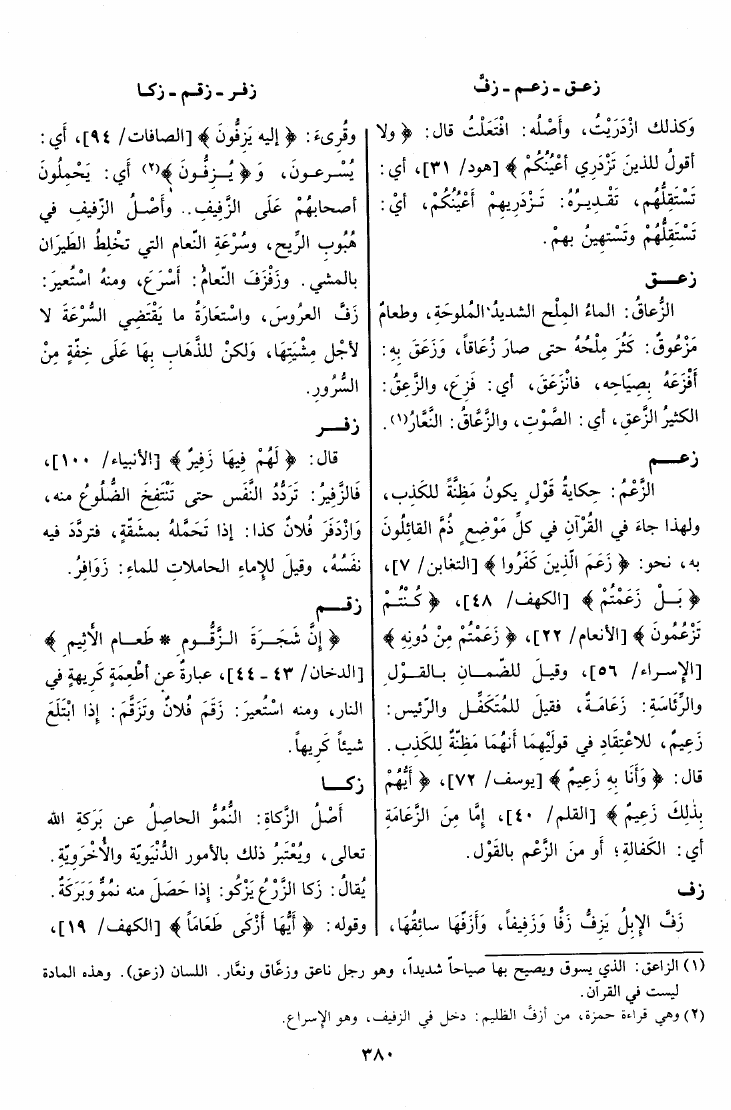 زعـق - زعـم - زفَّ
وكذلك ازْدَرَيْتُ، وأَصْلُه: افْتَعَلْتُ قال: ﴿ ولا
أقولُ للذينَ تَزْدَرِي أعْيُنُكُمْ ﴾ [هود/ ٣١]، أي:
تَسْتَقِلُّهُم، تَقْـدِيـرُهُ: تَـزْدَرِيهِمْ أَعْيُنُكُمْ، أيْ:
تَسْتَقِلُّهُمْ وتَسْتَهِينُ بهِمْ.
زعـــق
الزُّعاقُ: الماءُ المِلْح الشديدُ المُلوحَةِ، وطعامٌ
مَزْعُوقٌ: كَثُرَ مِلْحُهُ حتى صارَ زُعَاقاً، وَزَعَقَ بِهِ:
أفْزَعَهُ بِصِيَاحِهِ، فانْزَعَقَ، أي: فَزِعَ، والزَّعِقُ:
الكثيرُ الزَّعقِ، أي: الصَّوْتِ، والزَّعَّاقُ: النَّعَّارُ(١).
زعـــم
الزَّعْمُ: حِكايةُ قَوْلٍ يكونُ مَظِنَّةً للكَذِبِ،
ولهذا جاءَ في القُرْآنِ في كلِّ مَوْضِعٍ ذُمَّ القائِلُونَ
به، نحو: ﴿ زَعَمَ الَّذِينَ كَفَرُوا ﴾ [التغابن/ ٧]،
﴿ بَــلْ زَعَمْتُمْ ﴾ [الكهف/ ٤٨]، ﴿ كُــنْتُــمْ
تَزْعُمُونَ ﴾ [الأنعام/ ٢٢]، ﴿ زَعَمْتُمْ مِنْ دُونِهِ ﴾
[الإسراء/ ٥٦]، وقيـلَ للضَّمـانِ بـالقَـوْلِ
والرِّئاسَةِ: زَعَامَةٌ، فقيلَ للمُتَكَفِّـلِ والرَّئيسِ:
زَعِيمٌ، للاعْتِقادِ في قولَيْهِمَا أنهُمَا مَظِنَّةٌ لِلكَذِبِ.
قال: ﴿ وَأَنَا بِهِ زَعِيمٌ ﴾ [يوسف/ ٧٢]، ﴿ أَيُّهُمْ
بِذَلِكَ زَعِيمٌ ﴾ [القلم/ ٤٠]، إمَّا مِنَ الزَّعَامَةِ
أي: الكَفالةِ؛ أو منَ الزَّعْمِ بالقَوْلِ.
زف
زَفَّ الإِبِلُ يَزِفُّ زَفًّا وَزَفِيفاً، وَأزَفَّهَا سائِقُهَا،
زفـر - زقـم - زكـا
وقُرِىءَ: ﴿ إليه يَزِفُّونَ ﴾ [الصافات/ ٩٤]، أي:
يُسْـرعـونَ، وَ﴿ يُــزِفُّــونَ ﴾(٢) أي: يَحْمِلُونَ
أصحابهُمْ عَلَى الزَّفِيفِ.. وأَصْلُ الزَّفيفِ في
هُبُوبِ الرِّيحِ، وسُرْعَةِ النَّعامِ التي تَخْلِطُ الطَيَرَانَ
بالمشي. وزَفْزَفَ النَّعامُ: أسْرَعَ، ومنهُ اسْتُعيرَ:
زَفَّ العرُوسَ، واسْتعارَةُ ما يَقْتَضِي السُّرْعَةَ لا
لأجْلِ مِشْيَتِهَا، وَلكنْ للذَّهابِ بِهَا عَلَى خِفَّةٍ مِنْ
السُّرُورِ.
زفـــر
قال: ﴿ لَهُمْ فِيهَا زَفِيرٌ ﴾ [الأنبياء/ ١٠٠]،
فَالزَّفِيرُ: تَرَدُّدُ النَّفَسِ حتى تَنْتَفِخَ الضُّلوعُ منه،
وَازْدَفَرَ فُلانٌ كذا: إذا تَحَمَّلهُ بمشَقَّةٍ، فتردَّدَ فيه
نفَسُهُ، وقيلَ للإِماءِ الحامِلاتِ للماءِ: زَوَافِرُ.
زقـــم
﴿ إِنَّ شَجَـرَةَ الـزَّقُّـومِ * طَعـام الأَثيمِ ﴾
[الدخان/ ٤٣ - ٤٤]، عبارةٌ عن أطْعِمَةٍ كَرِيهةٍ في
النار، ومنه اسْتُعيرَ: زَقَمَ فُلانٌ وتَزَقَّمَ: إذا ابْتَلَعَ
شيئاً كَرِيهاً.
زكـــا
أصْلُ الزَّكاةِ: النُّمُوُّ الحاصِلُ عن بَرَكةِ اللهِ
تعالى، ويُعْتَبَرُ ذلك بالأمور الدُّنْيَوِيَّةِ والأُخْرَوِيَّةِ.
يُقالُ: زكا الزَّرْعُ يَزْكُو: إذا حَصَلَ منه نموٌّ وَبَرَكَةٌ.
وقوله: ﴿ أَيُّهَا أزْكَى طَعَاماً ﴾ [الكهف/ ١٩]،
(١) الزاعق: الذي يسوق ويصيح بها صياحاً شديداً، وهو رجل ناعق وزعَّاق ونعَّار. اللسان (زعق). وهذه المادة
ليست في القرآن.
(٢) وهي قراءة حمزة، من أزفَّ الظليم: دخل في الزفيف، وهو الإسراع.
٣٨٠